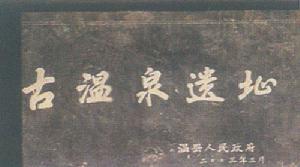 古温泉遗址
温县人民政府
二〇〇三年三月